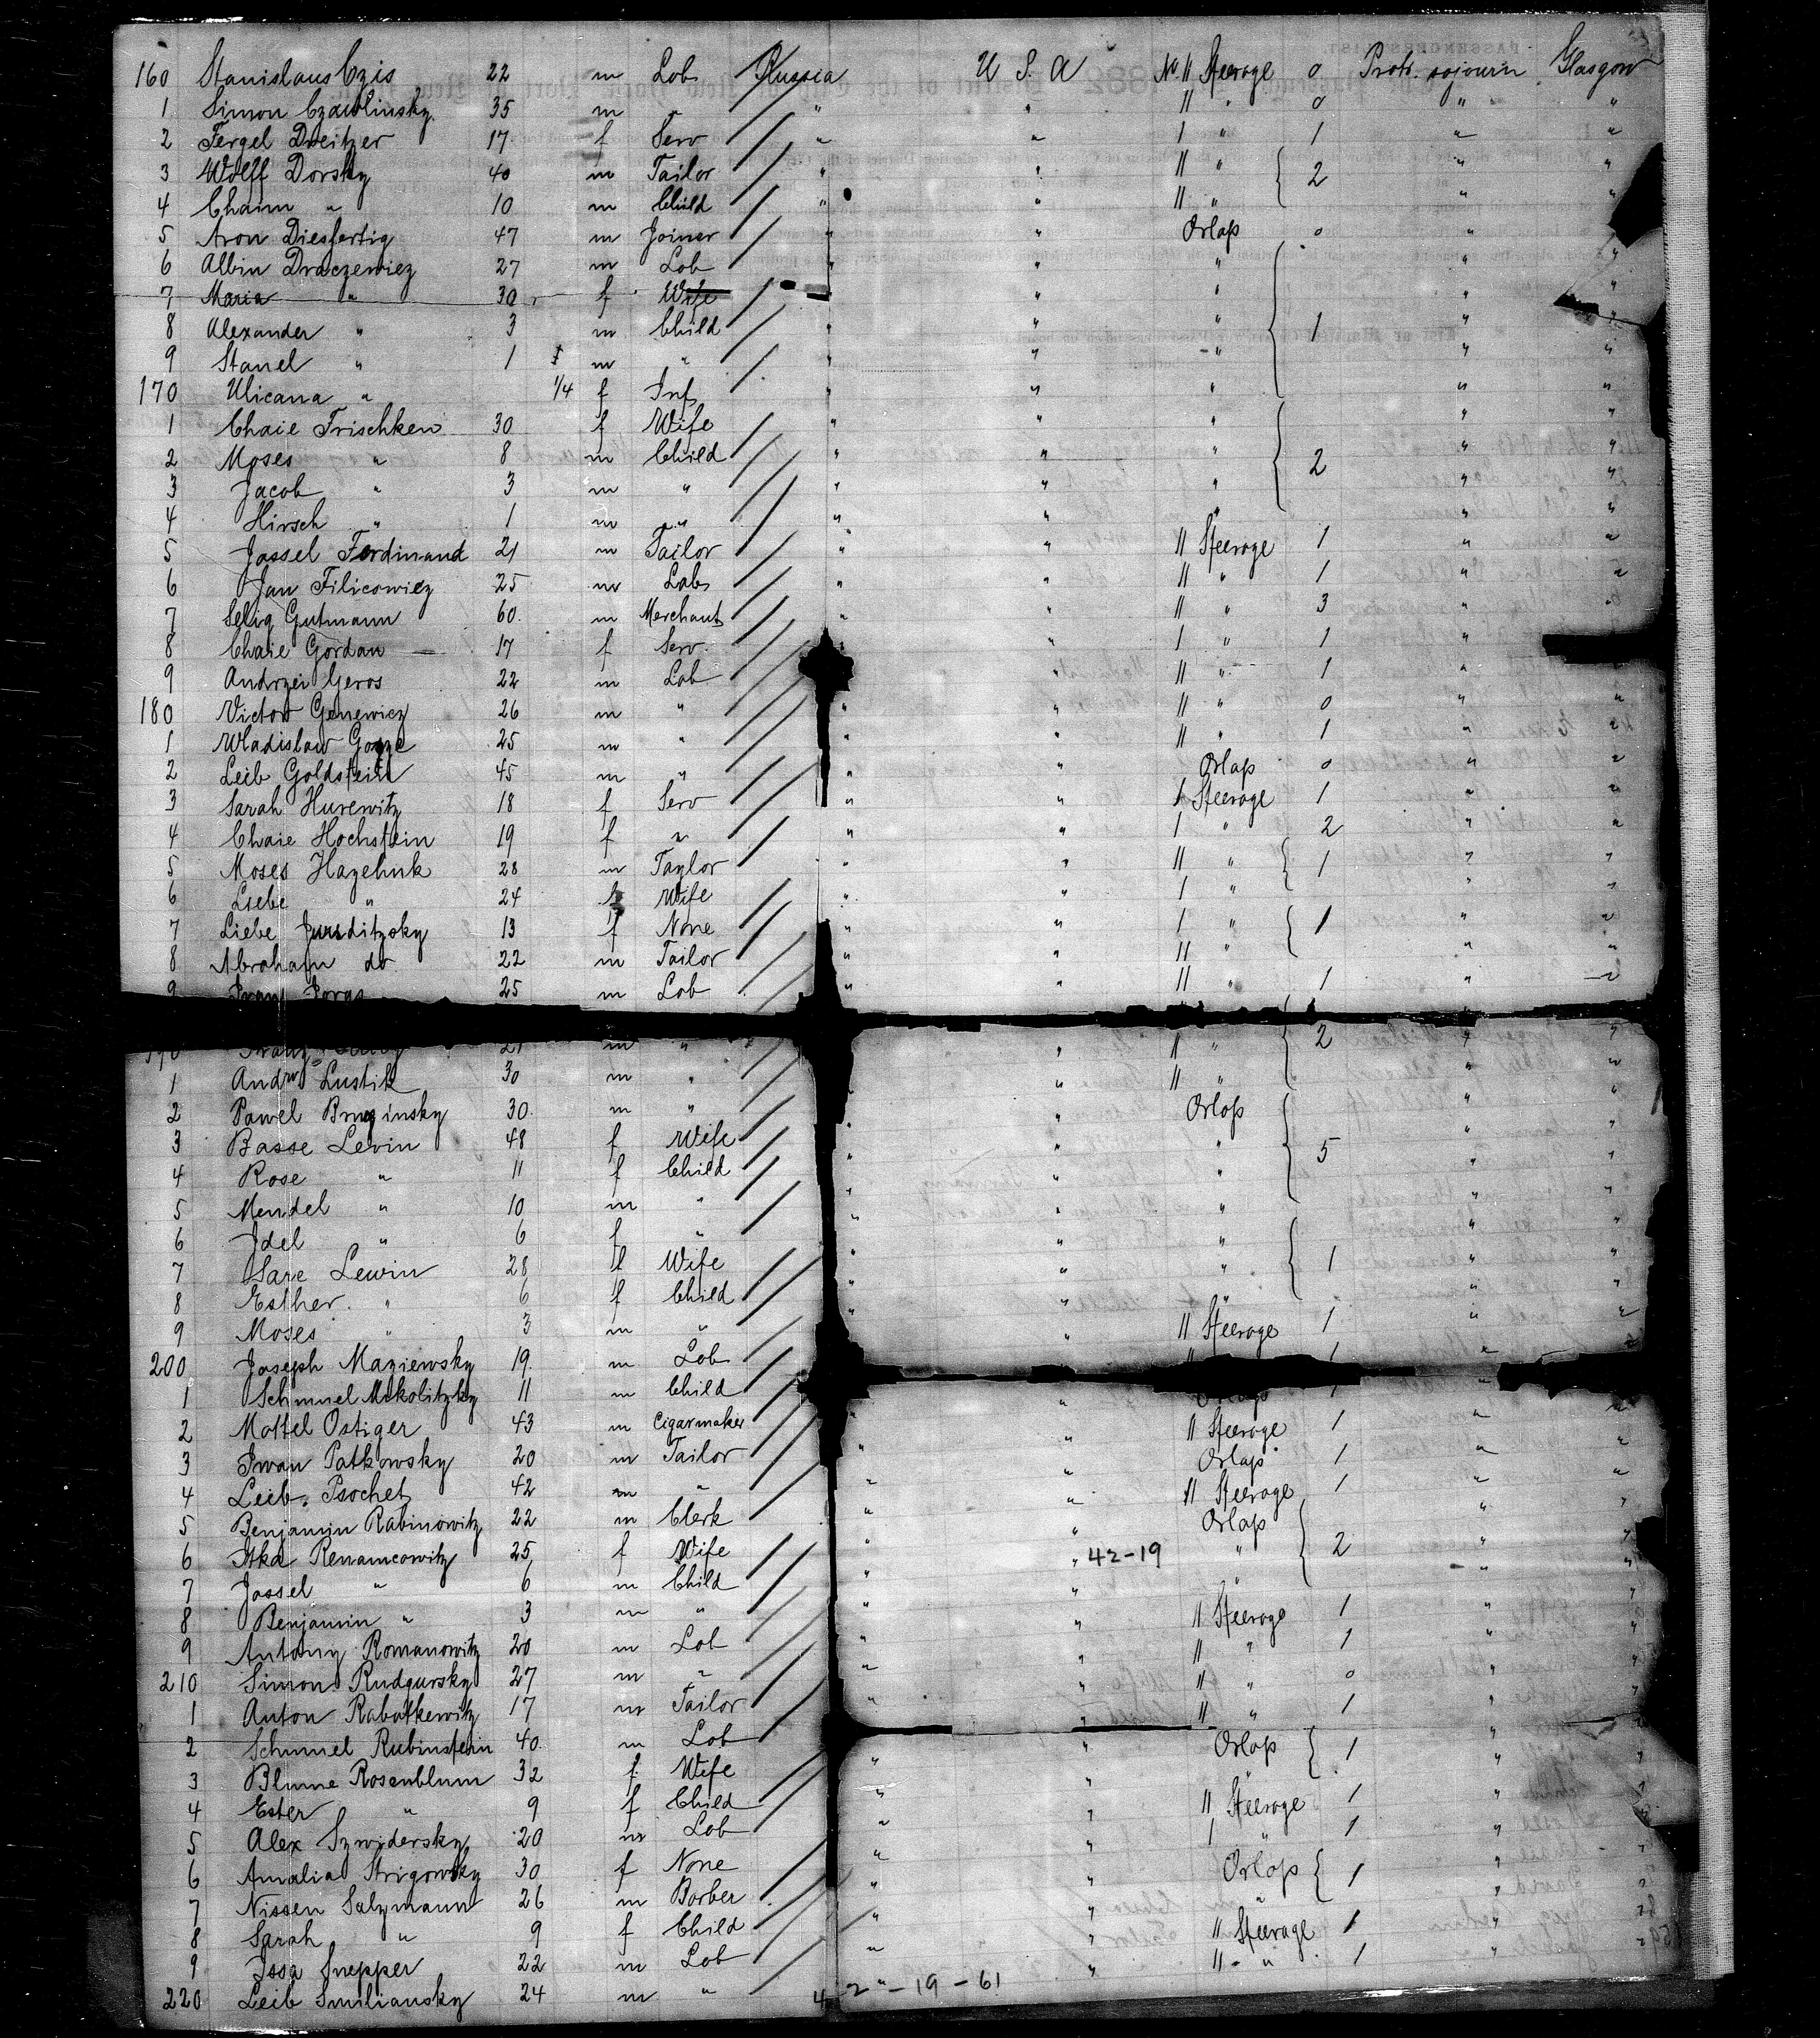 160 Stanislaus Czis 22 m Lab Russia U. S. A No. II Steerage 0 Protr. sojourn Glasgow
1 Simon Czawlinsky 35 m " " II " 0 " "
2 Fergel Dreitzer 17 f Serv " " I " 1 " "
3 Wolff Dorsky 40 m Tailor " " II " 2 " "
4 Chaim " 10 m Child " " II " " "
5 Aron Diesfertig 47 m Joiner " " Orlop 0 " "
6 Albin Draczewicz 27 m Lab " " " " "
7 Maria " 30 f Wife " " " "
8 Alexander " 3 m Child " " " 1 " "
9 Stanel " 1 m " " " " " "
170 Ulicana " 1/4 f Inf " " " " "
1 Chaie Frischken 30 f Wife " " " " "
2 Moses " 8 m Child " " " 2 " "
3 Jacob " 3 m " " " " " "
4 Hirsch " 1 m " " " " " "
5 Jossel Ferdinand 21 m Tailor " " II Steerage 1 " "
6 Jan Filicowicz 25 m Lab " " II " 1 " "
7 Selig Gutmann 60 m Merchant " " II " 3 " "
8 Chaie Gordan 17 f Serv. " I " 1 "
9 Andrzei Geros 22 m Lab " II " 1 " "
180 Victor Genewicz 26 m " " " II " 0 " "
1 Wladislaw 25 m " " " II " 1 " "
2 Leib Goldstein 45 m " " " Orlop 0 " "
3 Sarah Hurewitz 18 f Serv " " I Steerage 1 " "
4 Chaie Hochstein 19 f " " " I " 2 " "
5 Moses Hazehuk 28 m Taylor " " II " 1 " "
6 Liebe " 24 f Wife " " I " " "
7 Liebe 13 f None " " I " 1 " "
8 Abraham do 22 m Tailor " " II " " "
9 25 m Lab " " II " 1 " "
190 21 m " " II " 2 " "
1 Andrw Lustik 30 m " " " II " " "
2 Pawel Bruzinsky 30 m " " " Orlop " "
3 Basse Levin 48 f Wife " " " 5 " "
4 Rose " 11 f Child " " " " "
5 Mendel " 10 m " " " " "
6 Idel " 6 f " " " " " "
7 Sare Lewin 28 f Wife " " " 1 " "
8 Esther " 6 f Child " " " " "
9 Moses " 3 m " " II Steerage 1 " "
200 Joseph Maziewsky 19 m Lab 1 "
1 Schmuel Mikolitzky 11 m Child " Orlop 1 "
2 Mottel Ostiger 43 m Cigarmaker " " II Steerage 1 " "
3 Iwan Patkowsky 20 m Tailor " " Orlop 1 " "
4 Leib Psochet 42 m " " " II Steerage 1 " "
5 Benjamin Rabinowitz 22 m Clerk " " Orlop " "
6 Itka Renamcowitz 25 f Wife " " 42-19 " 2 " "
7 Jossel " 6 m Child " " " "
8 Benjamin " 3 m " " " II Steerage 1 " "
9 Antony Romanowitz 20 m Lab " " II " 1 " "
210 Simon Rudgursky 27 m " " " II " 0 " "
1 Anton Rabatkewitz 17 m Tailor " " II " 1 " "
2 Schmuel Rubinstein 40 m Lab " " Orlop 1 " "
3 Blume Rosenblum 32 f Wife " " " "
4 Ester " 9 f Child " " II Steerage 1 " "
5 Alex Szwidersky 20 m Lab " " I " 1 " "
6 Amalia Strigowsky 30 f None " " Orlop 1 " "
7 Nissen Salzmann 26 m Barber " " " "
8 Sarah " 9 f Child " " II Steerage 1 "
9 Issa Snepper 22 m Lab " II " 1
220 Leib Smiliansky 24 m " 42"-19-61